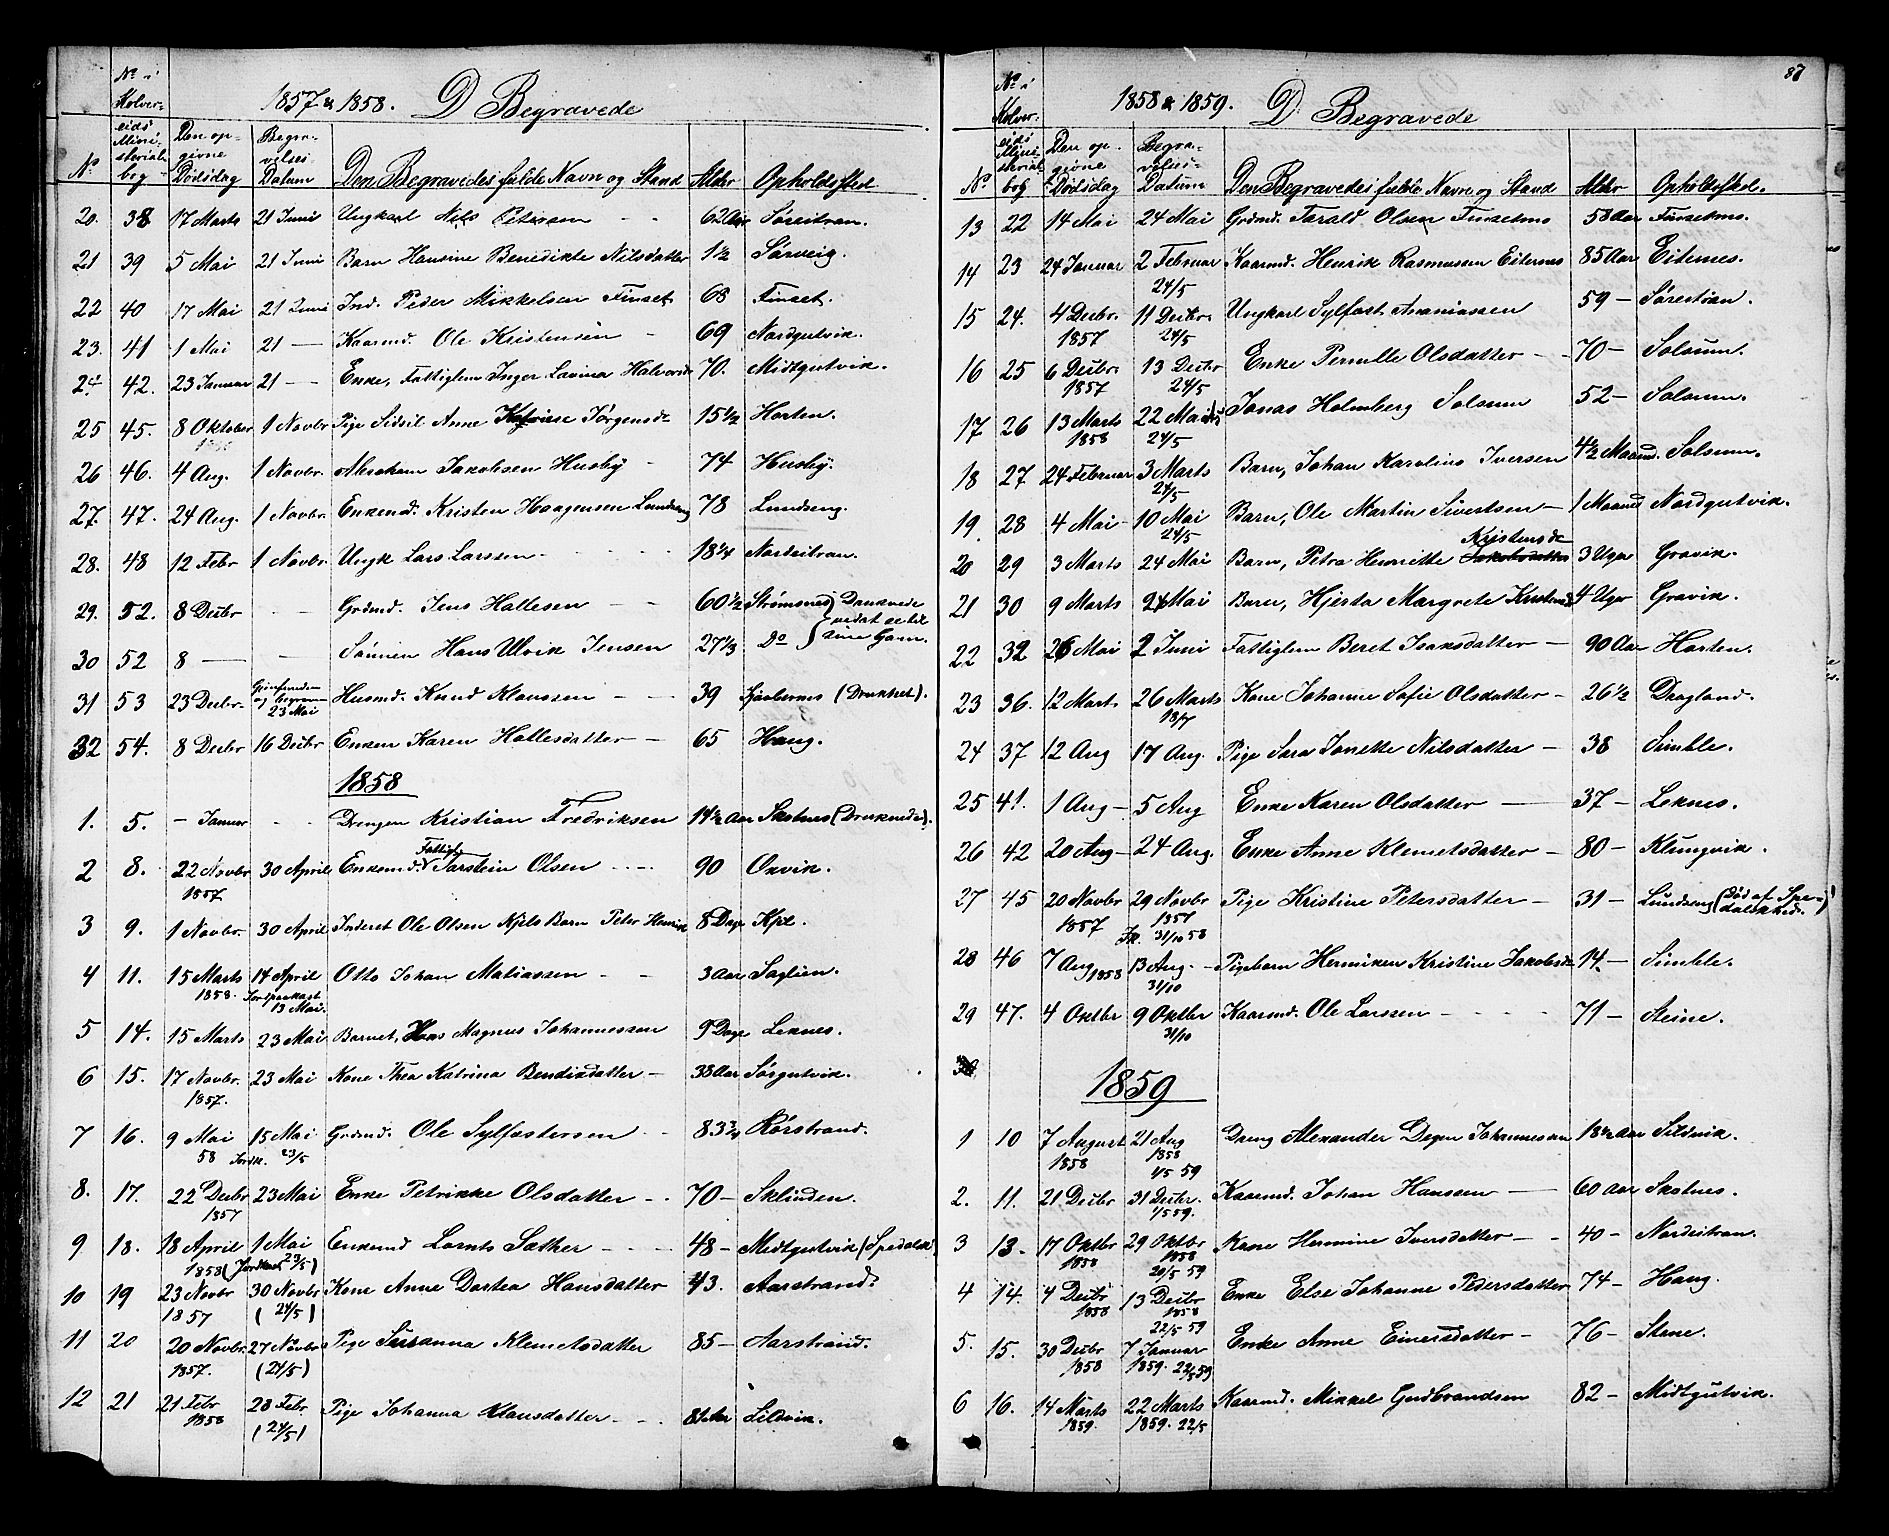 1857 & 1858. D Begravede
No. No i Kolver-eids Mini-sterial-bog Den op-givne Dødsdag Begra-velses-Datum Den Begravedes fulde Navn og Stand Alder Opholdssted
20. 38 17 Marts 21 Juni Ungkarl Nils Petersen - - 62 Aar Søreitran.
21 39 5 Mai 21 Juni Barn Hansine Benedikte Nilsdatter 1½ Sørveig.
22 40 17 Mai 21 Juni Ind. Peder Mikkelsen Finset 68 Finset.
23. 41 1 Mai 21 — Kaarmd. Ole Kristensen - 69 Nordgutvik.
24 42. 23 Januar 21 - - Enke, Fattiglem Inger Lavina Halvorsd 70. Midtgutvik.
25 45. 8 Oktober 1 Novbr Pige Sidsil Anne Jørgensd 15½ Horten.
26 46. 4 Aug. 1 Novbr. Abraham Jakobsen Husby - 74 Husby.
27. 47. 24 Aug. 1 Novbr. Enkemd. Kristen Haagensen Lundseng 78 Lundseng.
28. 48 12 Febr 1 Novbr. Ungk Lars Larssen - - - 18¼ Nordeitran.
29. 52. 8 Decbr - - Grdmd. Jens Hallesen - - 60½ Strømsnes } Druknede
30 52 8 — — Sønnen Hans Ulvik Jensen 27⅓ Do } sine Garn.
31 53 23 Decbr. Gjenfunden og begraven 23 Mai Husmd. Knud Klaussen - - 39 (Druknet).
32 54. 8 Decbr 16 Decbr Enken Karen Hallesdatter — 65 Haug.
1858
1. 5. - Januar - - Drengen Kristian Fredriksen 14½ Aar Skotnes (Druknede).
2 8. 22 Novbr 1857 30 April Enkemd. Fattigl. Tarstein Olsen - - - 90 Oxvik.
3 9. 1 Novbr. 30 April Inderst Ole Olsen Kjels Barn Peter Henrik 8 Dage Kjel.
4 11. 15 Marts 1858. 14 April Jordpaakast 13 Mai. Otto Johan Matiassen - - 3 Aar Saglien.
5 14. 15 Marts 23 Mai Barnet, Hans Magnus Johannessen 9 Dage Leknes.
6 15. 17 Novbr. 1857. 23 Mai Kone Thea Katrina Bendixdatter — 38 Aar Sørgutvik.
7 16. 9 Mai 58 15 Mai Jordk. 23/5 Grdmd. Ole Sylfastersen - - 83¾ Rørstrand.
8. 17. 22 Decbr 1857 23 Mai Enke Petrikke Olsdatter - - 70 — Sklinden.
9 18. 18 April 1858 1 Mai (Jordkast 23/5) Enkemd Lornts Sæther - - - 48 — Midtgutvik (Spedalsk
10 19 23 Novbr 1857 30 Novbr (24/5) Kone Anne Dortea Hansdatter 43. Aarstrand.
11 20 20 Novbr. 1857. 27 Novbr (24/5) Pige Susanna Klemetsdatter 85 — Aarstrand.
12 21 21 Febr 1858 28 Febr. (24/5) Pige Johanna Klausdatter - - - 81 Aar Lildvik.
87
1858 & 1859. D. Begravede
No. No i Kolver-eids Mini-sterial-bog Den op-givne Dødsdag Begra-velses-Datum Den Begravedes fulde Navn og Stand Alder Opholdssted.
13 22 14 Mai 24 Mai Grdmd. Tarald Olsen 58 Aar
14 23 24 Januar 2 Februar 24/5 Kaarmd. Henrik Rasmussen Eiternes 85 Aar Eiternes.
15 24. 4 Decbr. 1857 11 Decbr. 24/5 Ungkarl Sylfast Ananiassen 59 — Søreitran.
16 25 6 Decbr. 1857 13 Decbr 24/5 Enke Pernille Olsdatter - - 70 — Solsum.
17 26 13 Marts 1858 22 Marts 24/5 Jonas Holmberg Solsum 52 — Solsum.
18 27 24 Februar 3 Marts 24/5 Barn, Johan Karolius Iversen 4½ Maaned. Solsum.
19. 28 4 Mai 10 Mai 24/5 Barn, Ole Martin Sivertsen — 1 Maaned Nordgutvik.
20 29 3 Marts 24 Mai Barn, Petra Henriette Jakobsdatter Kristensdr 3 Uger Gravik.
21 30 9 Marts 24 Mai Barn, Hjerta Margrete Kristensd 4 Uger Gravik.
22 32 26 Mai 2 Juni Fattiglem Beret Isaksdatter — 90 Aar Horten.
23 36. 12 Marts 26 Marts 18/7 Kone Johanne Sofie Olsdatter — 26½ Dragland.
24 37 12 Aug 17 Aug. Pige Sara Jonette Nilsdatter — 38 Simble.
25 41. 1 Aug — 5 Aug Enke Karen Olsdatter — 37 — Leknes.
26 42 20 Aug — 24 Aug. Enke Anne Klemetsdatter — 80 — Klungvik.
27 45 20 Novbr 1857 29 Novbr 1857 Jk. 31/10 58 Pige Kristine Petersdatter — 31 — Lundseng (Død af Spe-dalskhed.)
28 46 7 Aug 1858 13 Aug. 31/10 Pigebarn Hermiken Kristine Jakobsdr 14. — Simble.
29 47. 4 Oktbr 9 Oktbr 31/10 Kaarmd. Ole Larssen - - - - 71 — Steine.
30
1859
1 10 7 August 1858 21 Aug 1858 1/5 59 Dreng Alexander Degen Johannessen 18½ Aar Sildvik.
2. 11. 21 Decbr 31 Decbr. 1/5 59. Kaarmd. Johan Hanssen — 60 Aar Skotnes.
3 13. 17 Oktbr 1858 29 Oktbr 1858 20/5 59 Kone Hermine Iversdatter — - 40 — Nordeitran.
4 14. 4 Decbr 1858 13 Decbr 1858 22/5 59 Enke Else Johanne Pedersdatter 74 — Haug.
5. 15. 30 Decbr 1858 7 Januar 1859. 22/5 59 Enke Anne Einersdatter — 76 — Stene.
6 16. 14 Marts 1859. 22 Marts 1859. 22/5 Kaarmd. Mikkel Gudbrandsen 82 — Midtgutvik.